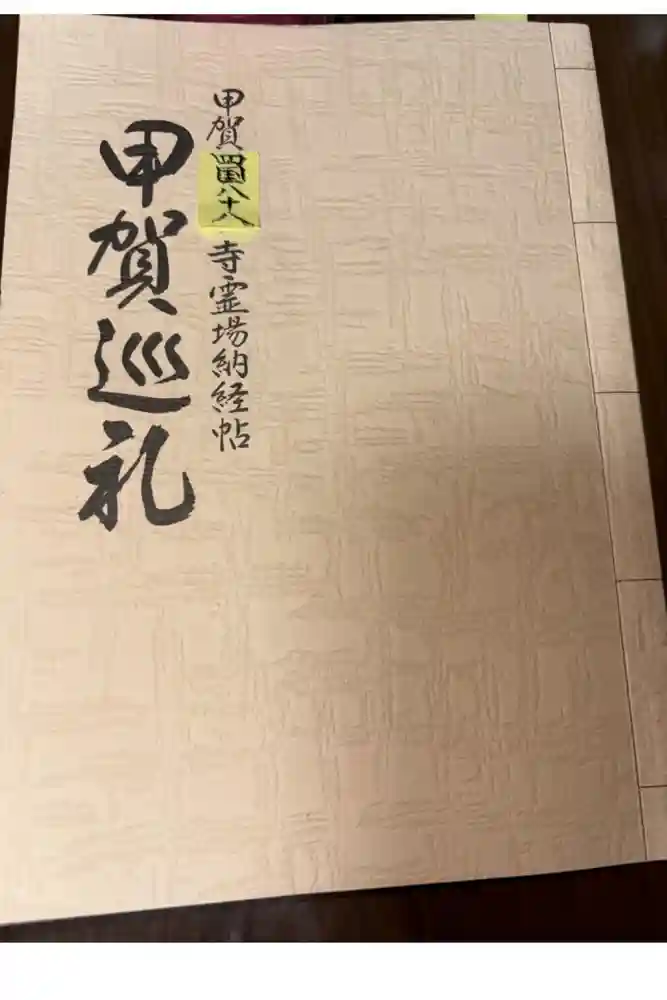 甲賀四国八十八寺霊場納経帖
甲賀巡礼